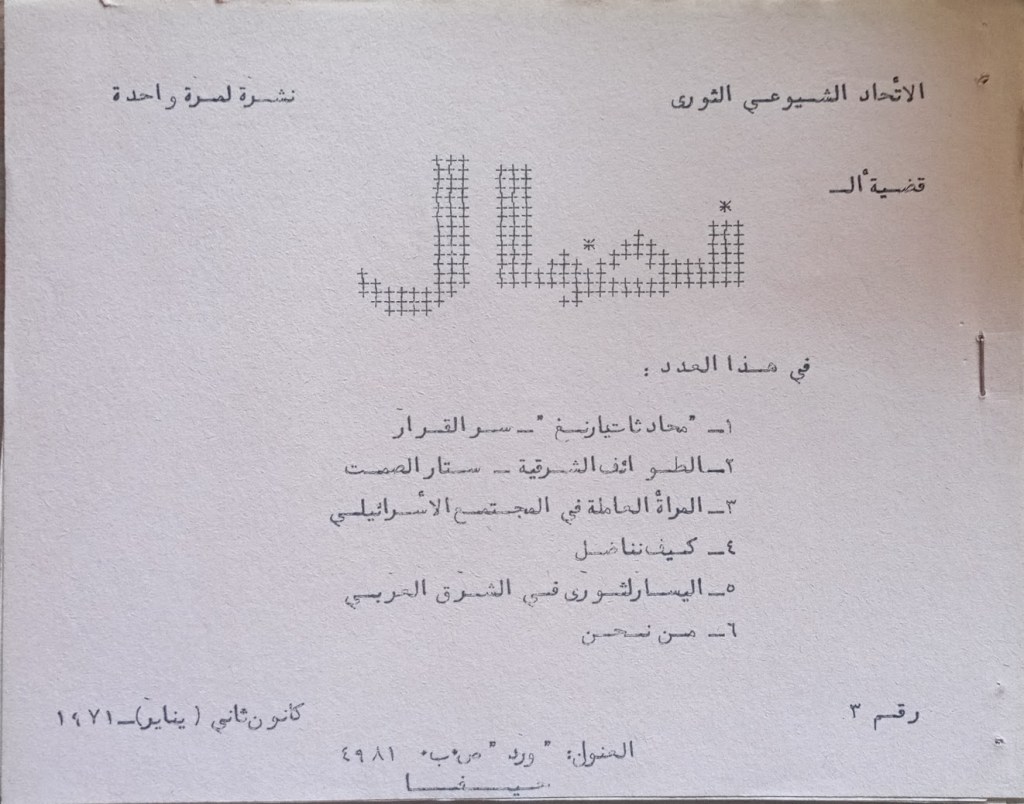 الاتٔحاد الشيوعي الثورى
نشرة لمرة واحدة
قضية ألـ
نضال
في هذا العدد :
١ـ "محادثات يارنغ" ـ سر القرار
٢ـ الطوائف الشرقية ـ ستار الصمت
٣ـ المرأة العاملة في المجتمع الأسرائيلي
٤ـ كيف نناضل
٥ـ اليسار لثورى في الشرق العربي
٦ـ من نحن
رقم ٣
كانون ثاني (يناير) ـ ١٩٧١
العنوان: "ورد" ص٠ب٠ ٤٩٨١
حيفا